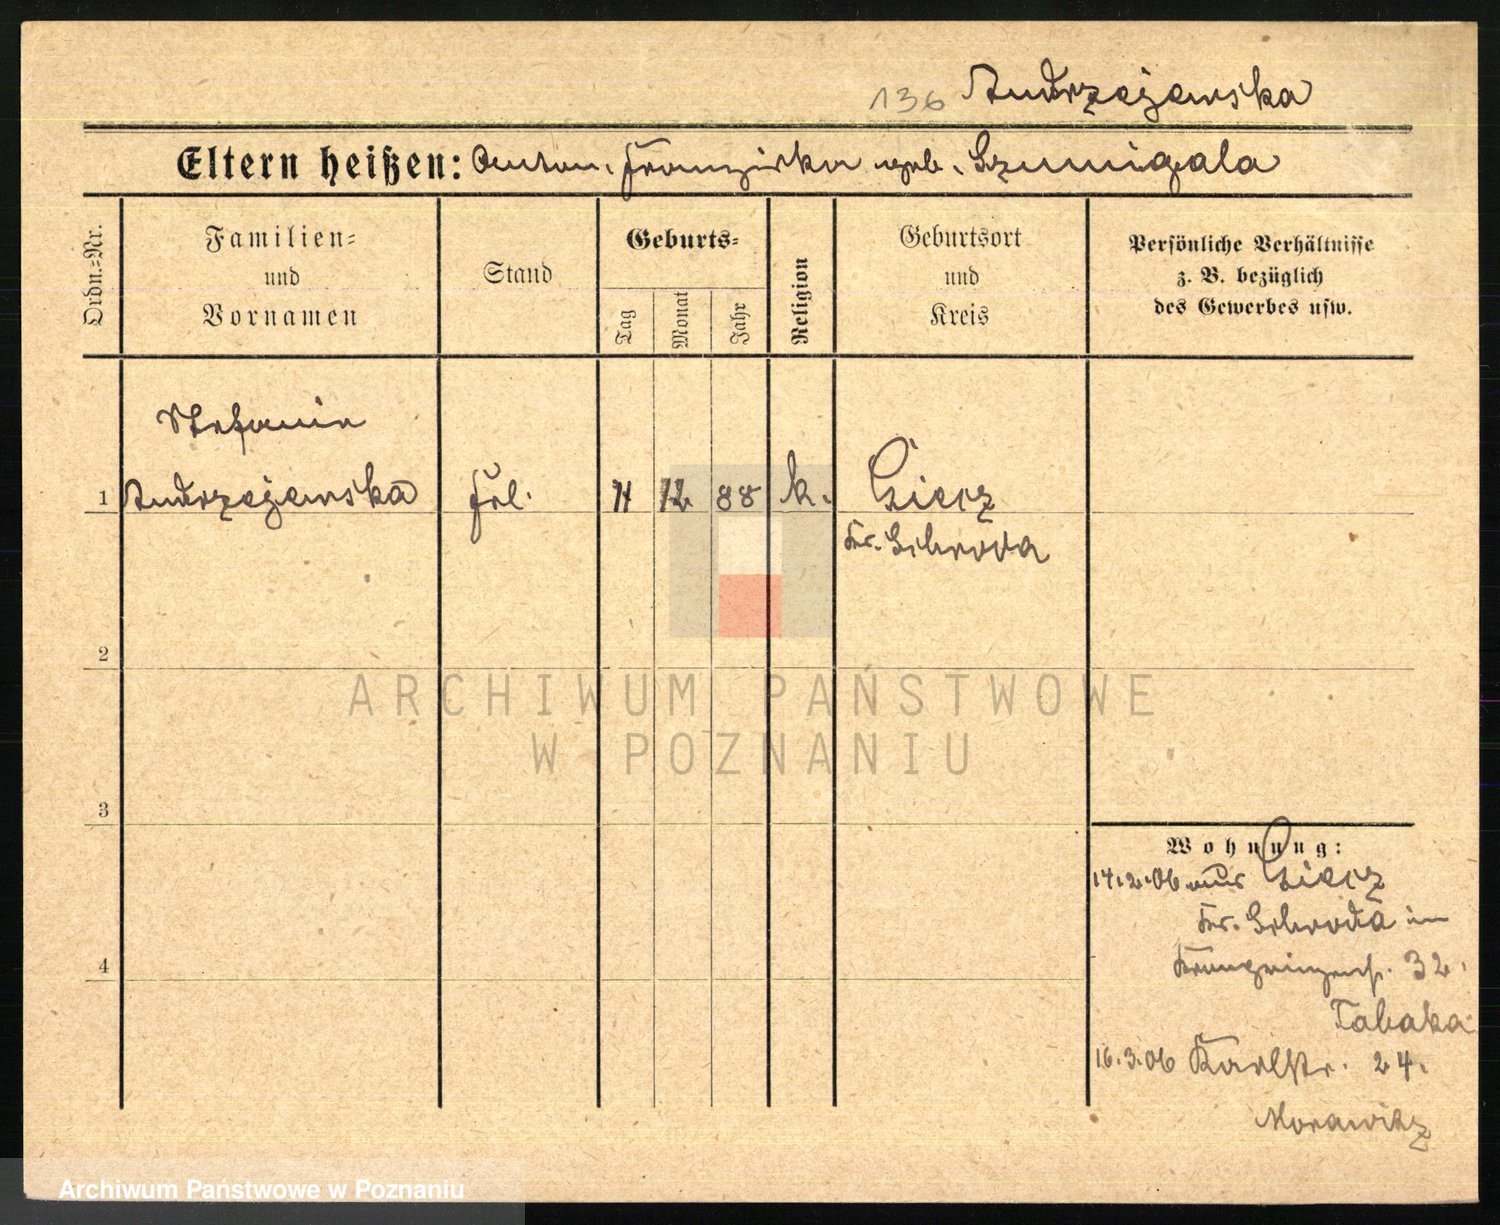 136 Andrzejewska
Eltern heißen: Anton, Franziska geb. Szumigala
Ordn.=Nr.
Familien=
und
Vornamen
Stand
Geburts=
Tag
Monat
Jahr
Religion
Geburtsort
und
Kreis
Persönliche Verhältnisse
z. B. bezüglich
des Gewerbes usw.
Stefanie
1 Andrzejewska Frl. 12 88 k. Giecz
Kr. Schroda
2
3
4
ARCHIWUM PAŃSTWOWE
W POZNANIU
Wohnung:
14.2.06 aus Giecz
Kr. Schroda in
Kronprinzenstr. 32.
Tabaka
16.3.06 Karlstr. 24.
Morawitz
Archiwum Państwowe w Poznaniu